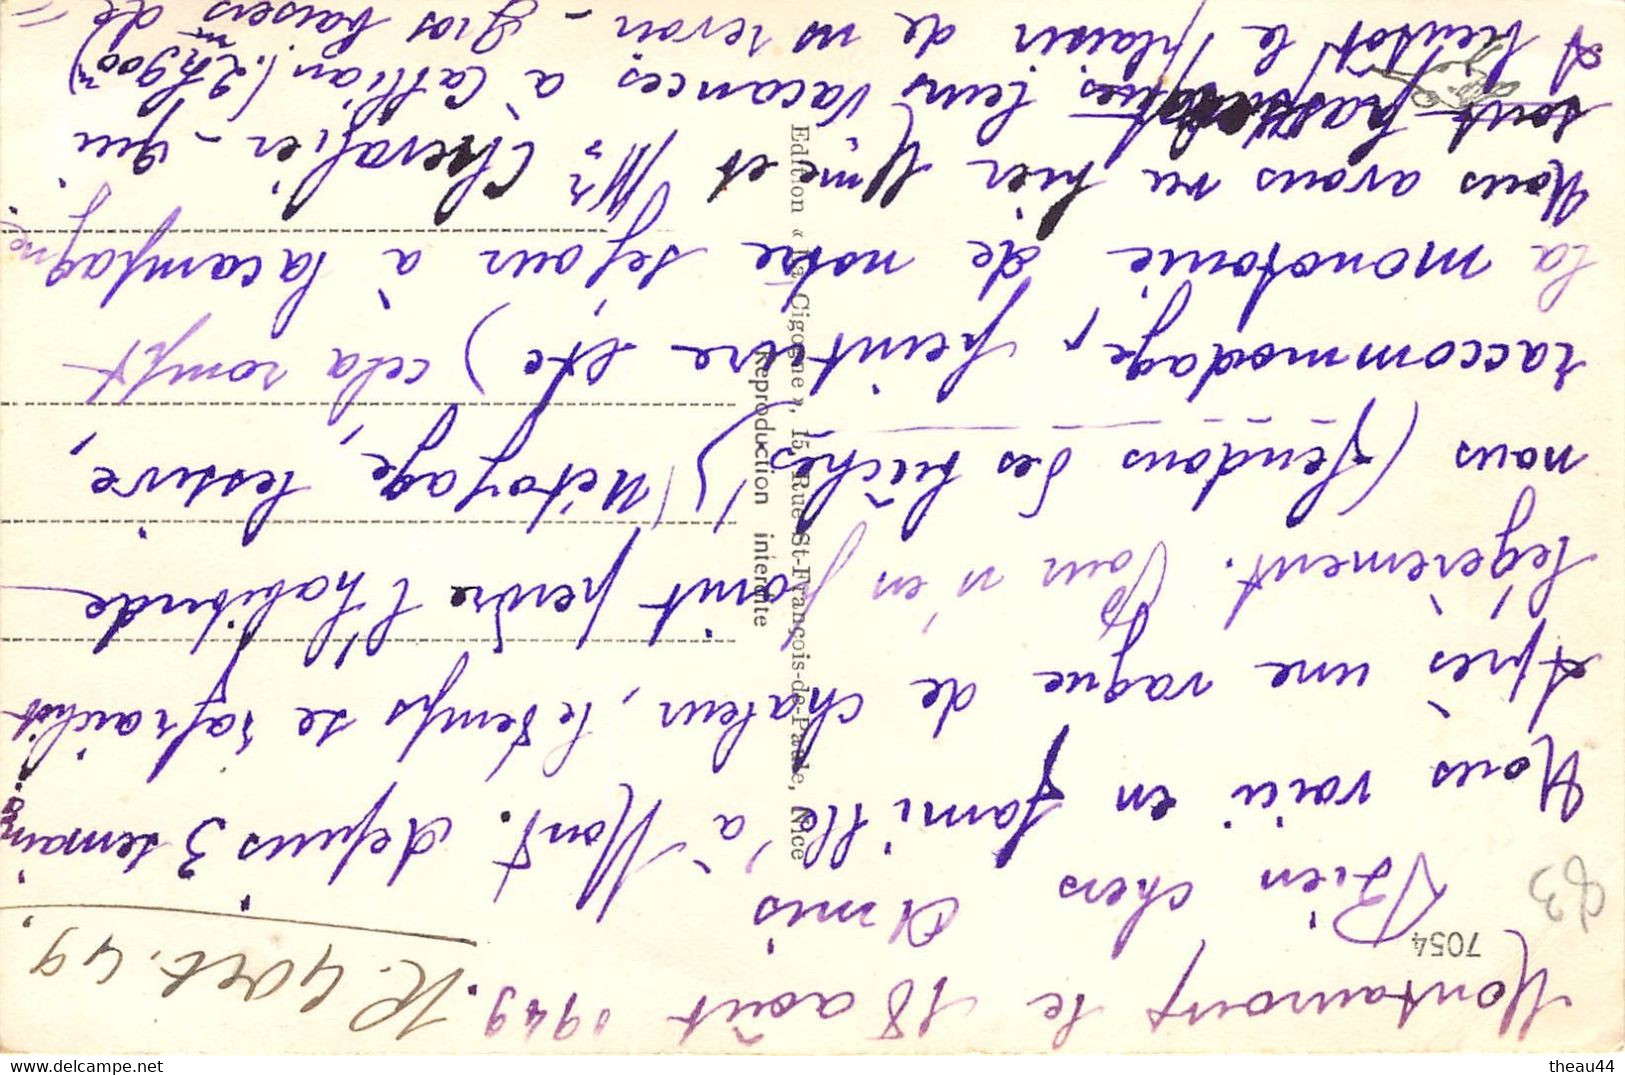 Montauroux le 18 août 1949. R. 4 Oct. 49
7054
Bien chers Amis
83
Nous voici en famille, à Mont. depuis 3 semaines.
Après une vague de chaleur, le temps se rafraîchit
légèrement. Pour n'en point perdre l'habitude
nous (fendons des bûches!) (Nétoyage, lessive,
raccommodage, peinture etc) cela rompt
la monotonie de notre séjour à la campagne.
Nous avons vu hier Mme et Mr Chevalier - qui
sont pas leurs vacances à Callian (2 km 900 m)
A bientôt le plaisir de ns revoir - Gros baisers de
Edition « La Cigogne », 15, Rue St-François-de-Paule, Nice
Reproduction interdite
https://www.delcampe.net
theau44